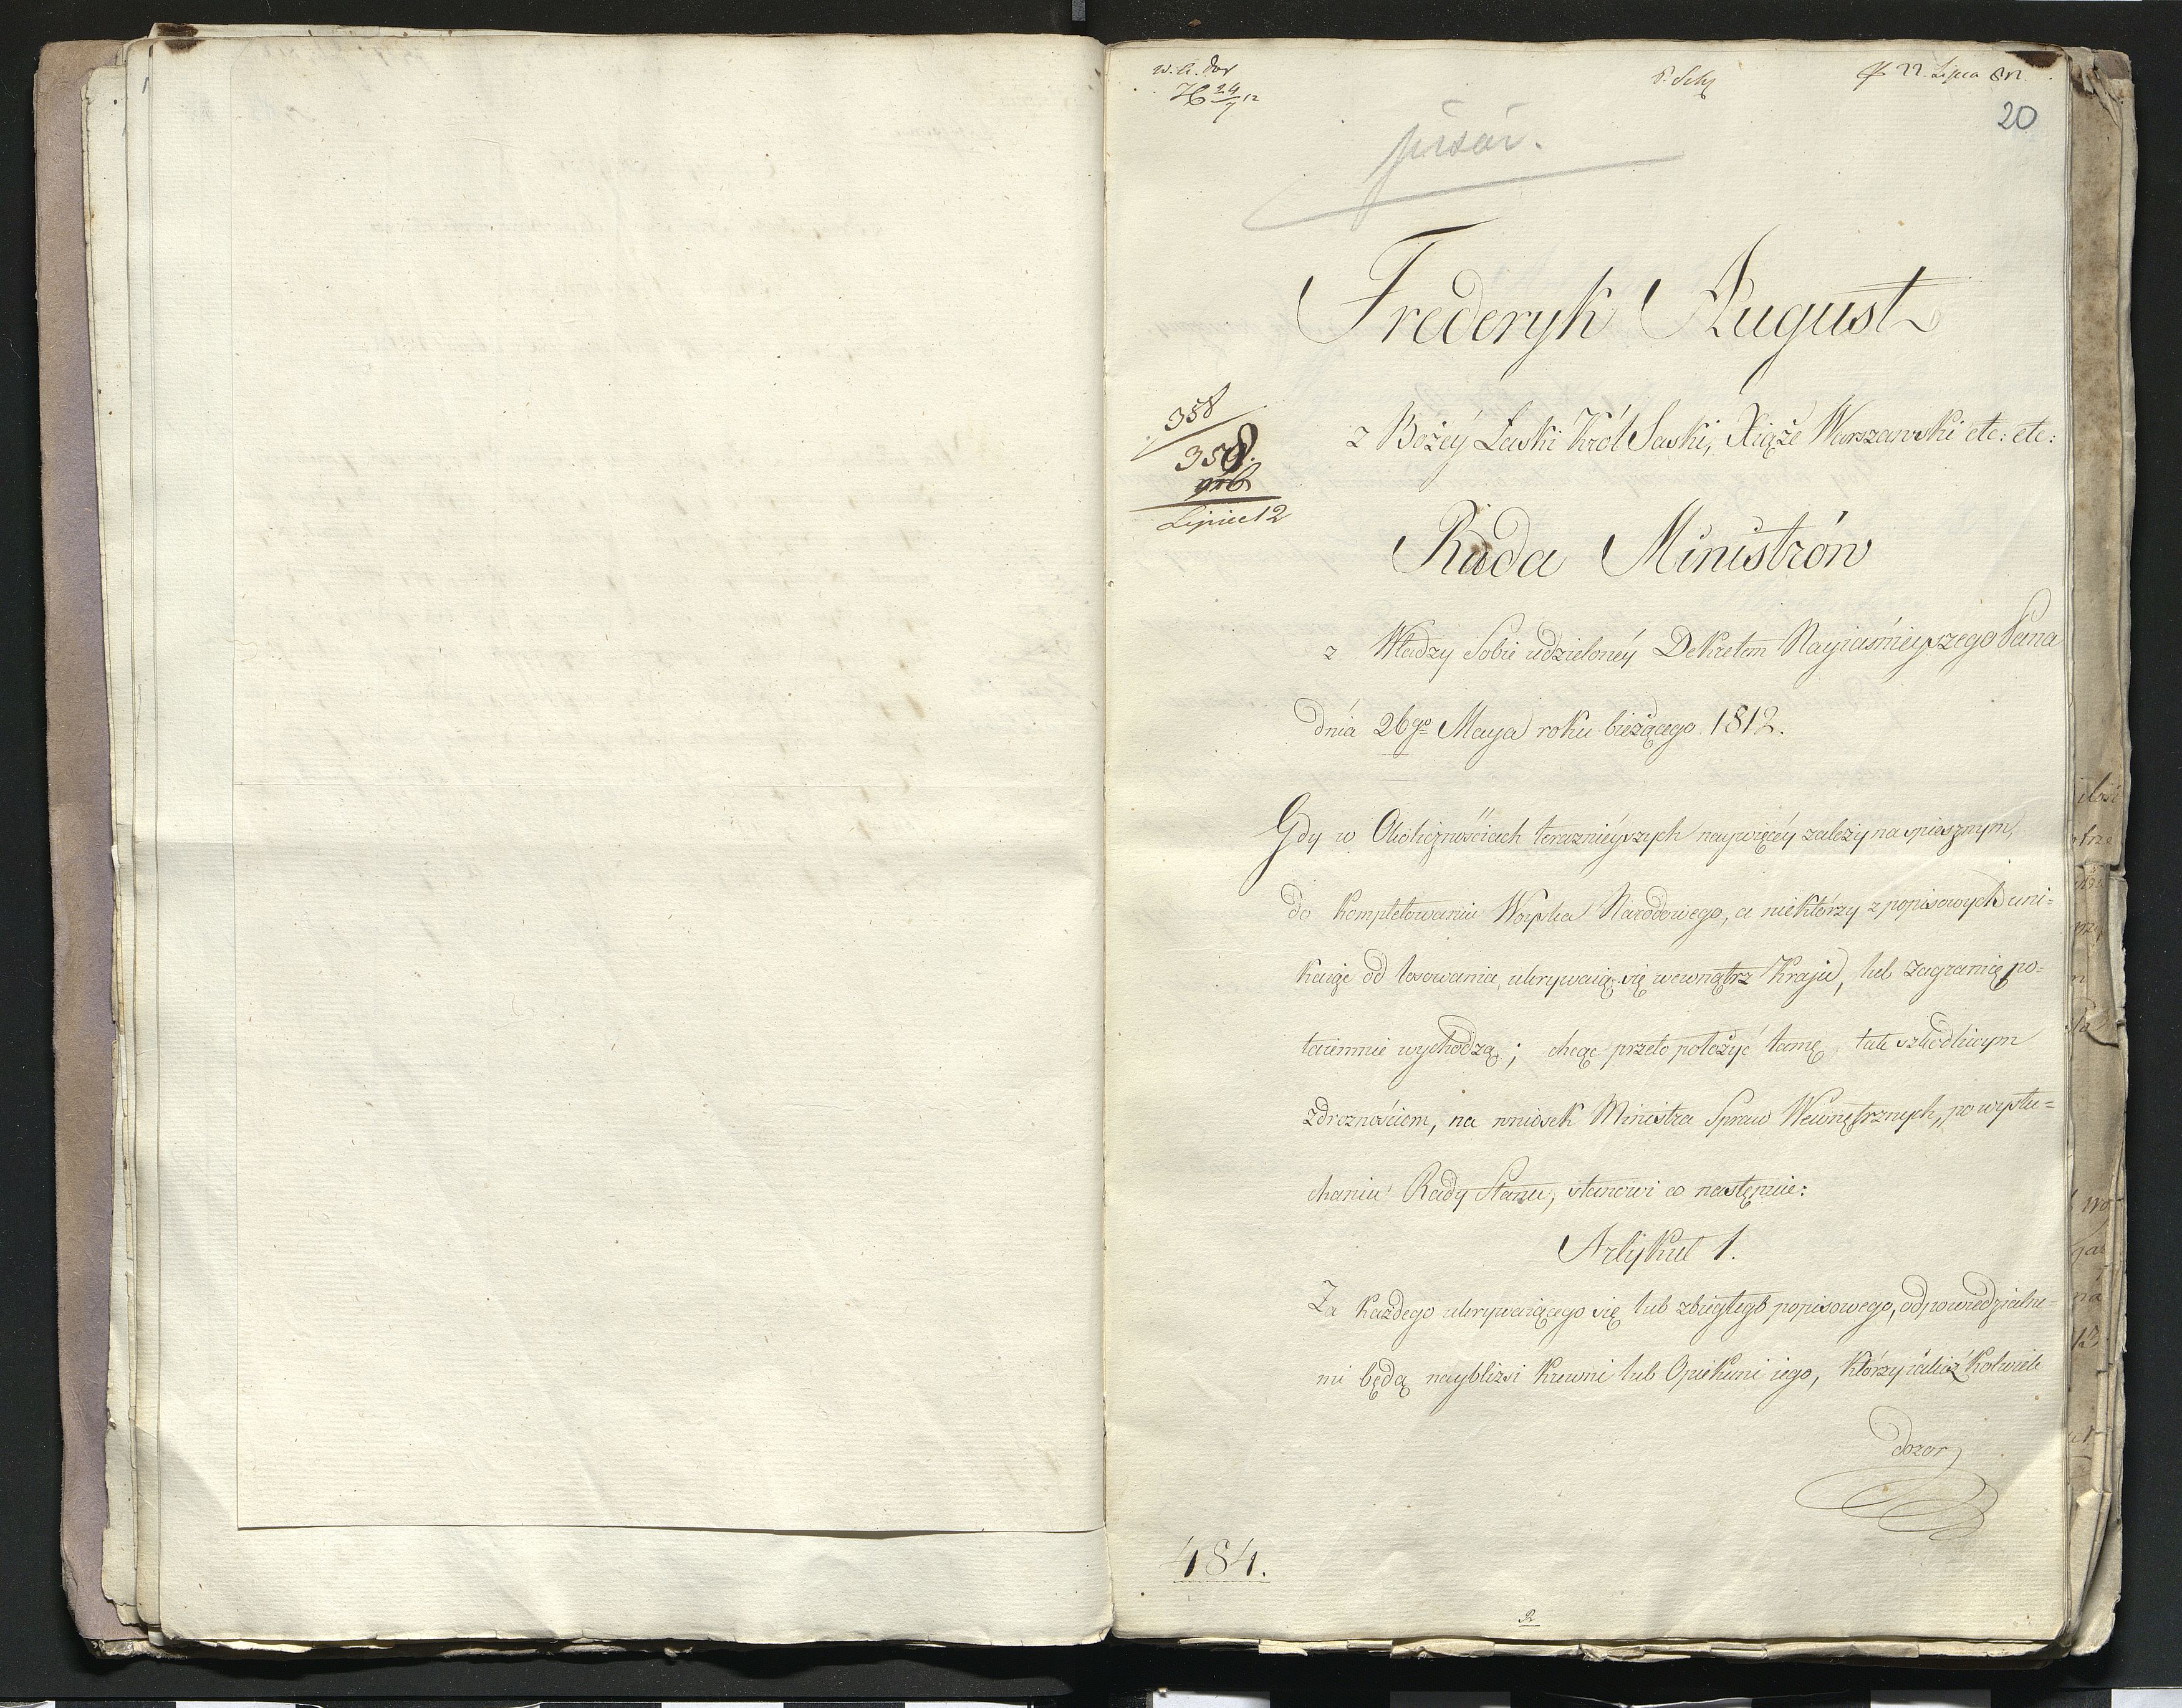 20
Frederyk August
z Bożéy Łaski Król Saski, Xiąże Warszawski etc: etc:
358
358.
Lipiec 12
Rada Ministrów
z Władzy Sobie udzielonéy Dekretem Nayiaśnieyszego Pana
dnia 26go Maya roku bieżącego 1812.
Gdy w Okolicznościach teraznieyszych naywięcéy zależy na spiesznym,
do kompletowaniu Woyska Narodowego, a niektórzy z popisowych uni=
kaiąc od losowania, ukrywaią się wewnątrz Kraju, lub zagranicę po=
taiemnie wychodzą; chcąc przeto położyć tamę tak szkodliwym
zdrożnościom, na wniosek Ministra Spraw Wewnętrznych, po wysłu=
chaniu Rady Stanu, stanowi co następuie:
Artykuł 1.
Za każdego ukrywaiącego się lub zbiegłego popisowego, odpowiedzialne=
mi będą nayblizsi Krewni lub Opiekuni iego, którzy iakiźkolwiek
dozor
484.